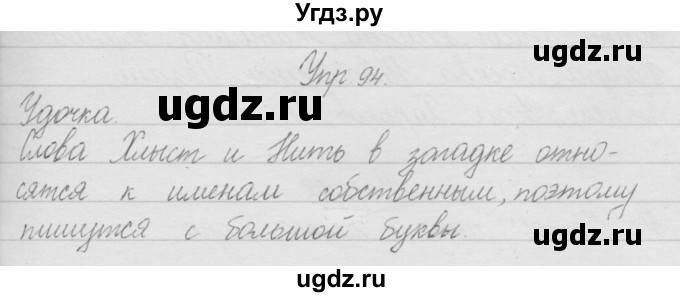 Угдз.ру
Упр. 94.
ugdz.ru
Удочка.
ugdz.ru
Слова Хлыст и Нить в загадке отно-
сятся к именам собственным, поэтому
пишутся с большой буквы.
ugdz.ru
ugdz.ru
ugdz.ru